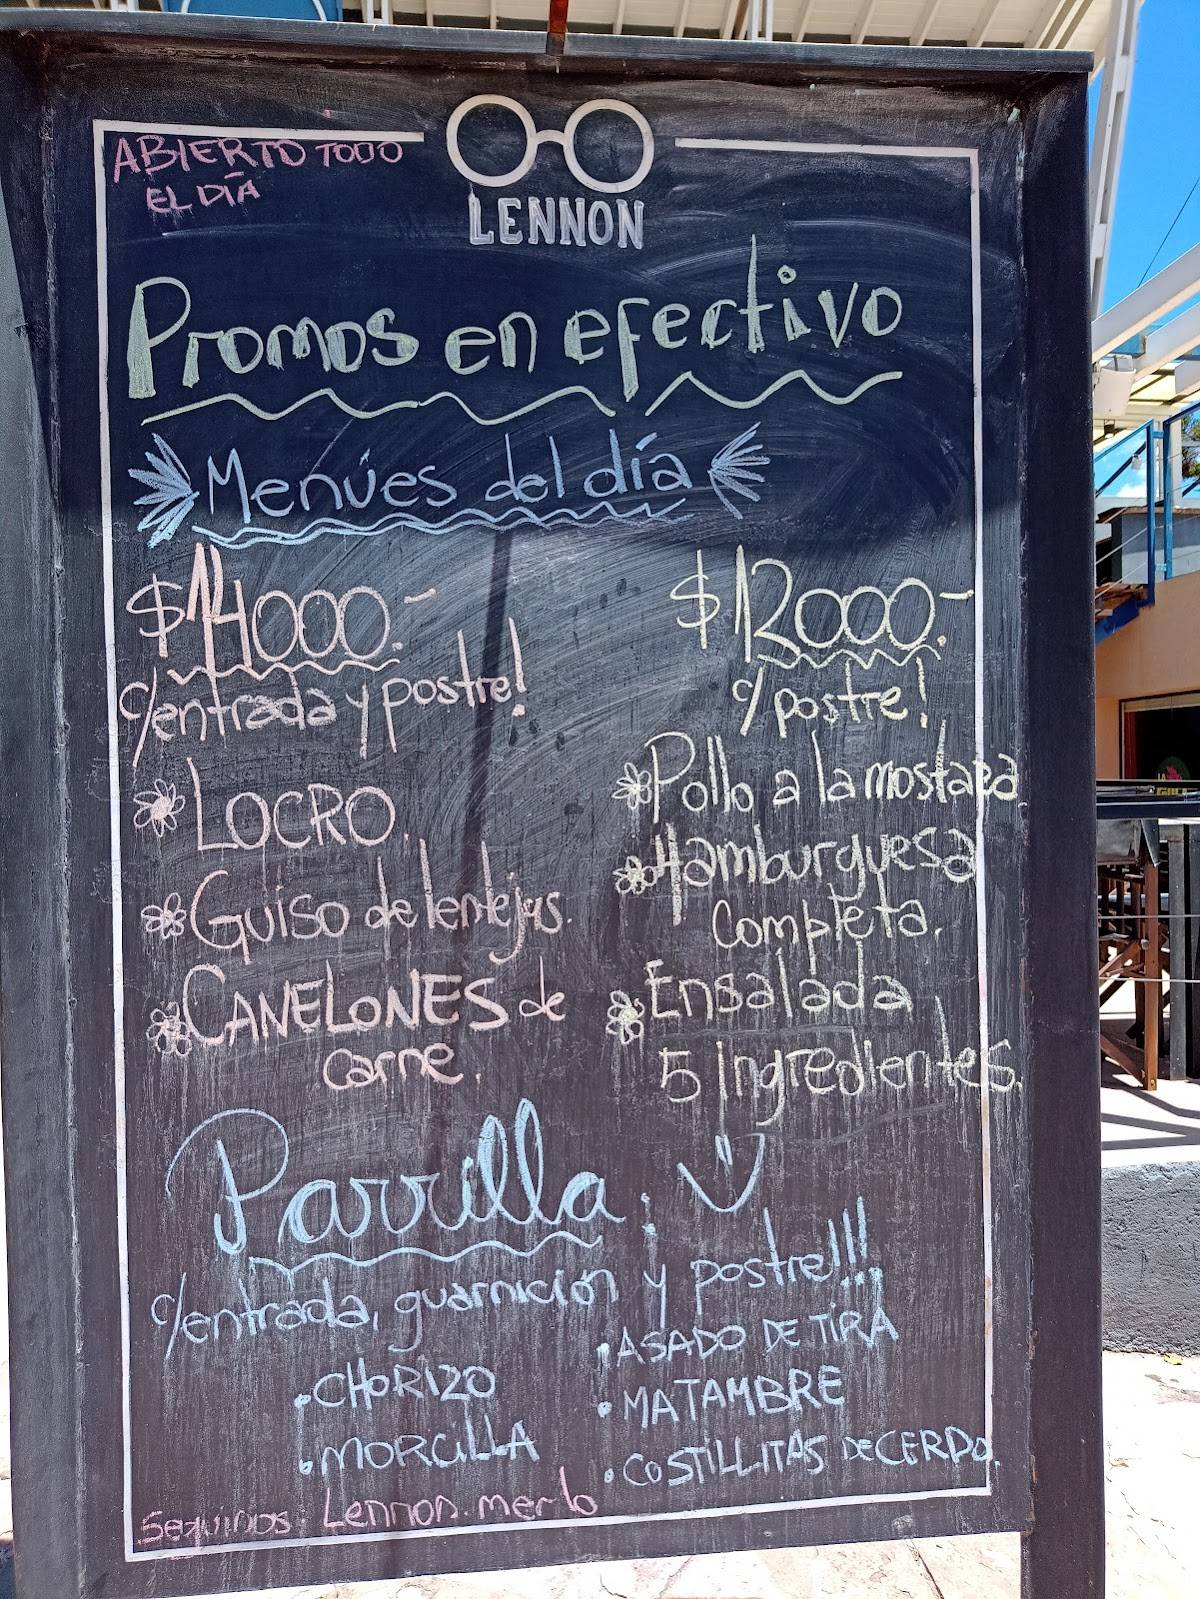 ABIERTO TODO
EL DÍA
LENNON
Promos en efectivo
Menúes del día
$14000.-
c/entrada y postre!
LOCRO.
Guiso de lentejas.
CANELONES de
carne.
$12000.-
c/ postre!
Pollo a la mostaza.
Hamburguesa
Completa.
Ensalada
5 Ingredientes.
Parrilla
c/entrada, guarnición y postre!!!
CHORIZO
MORCILLA
ASADO DE TIRA
MATAMBRE
COSTILLITAS DE CERDO.
Seguinos: Lennon.merlo